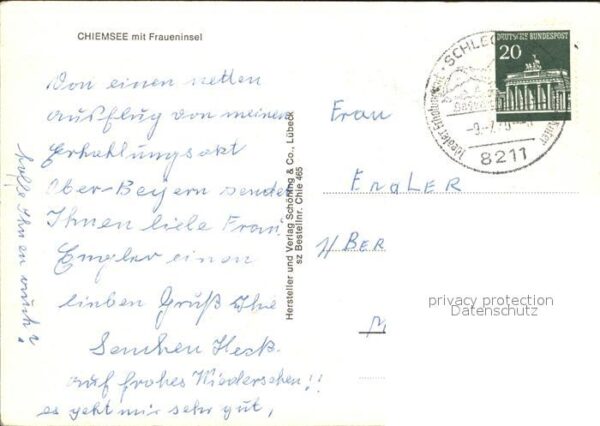 CHIEMSEE mit Fraueninsel
Von einen netten
Ausflug von meinem
Erhohlungsokt
Ober-Beyern sende
Ihnen liebe Frau
Engler einen
lieben Gruß Ihr
Auf frohes Wiedersehen!!
es geht mir sehr gut,
hoffe Ihnen auch?
Hersteller und Verlag Schöning & Co., Lübeck
sz Bestellnr. Chie 465
DEUTSCHE BUNDESPOST
20
SCHLEC
8211
Frau
ENGLER
BER
privacy protection
Datenschutz